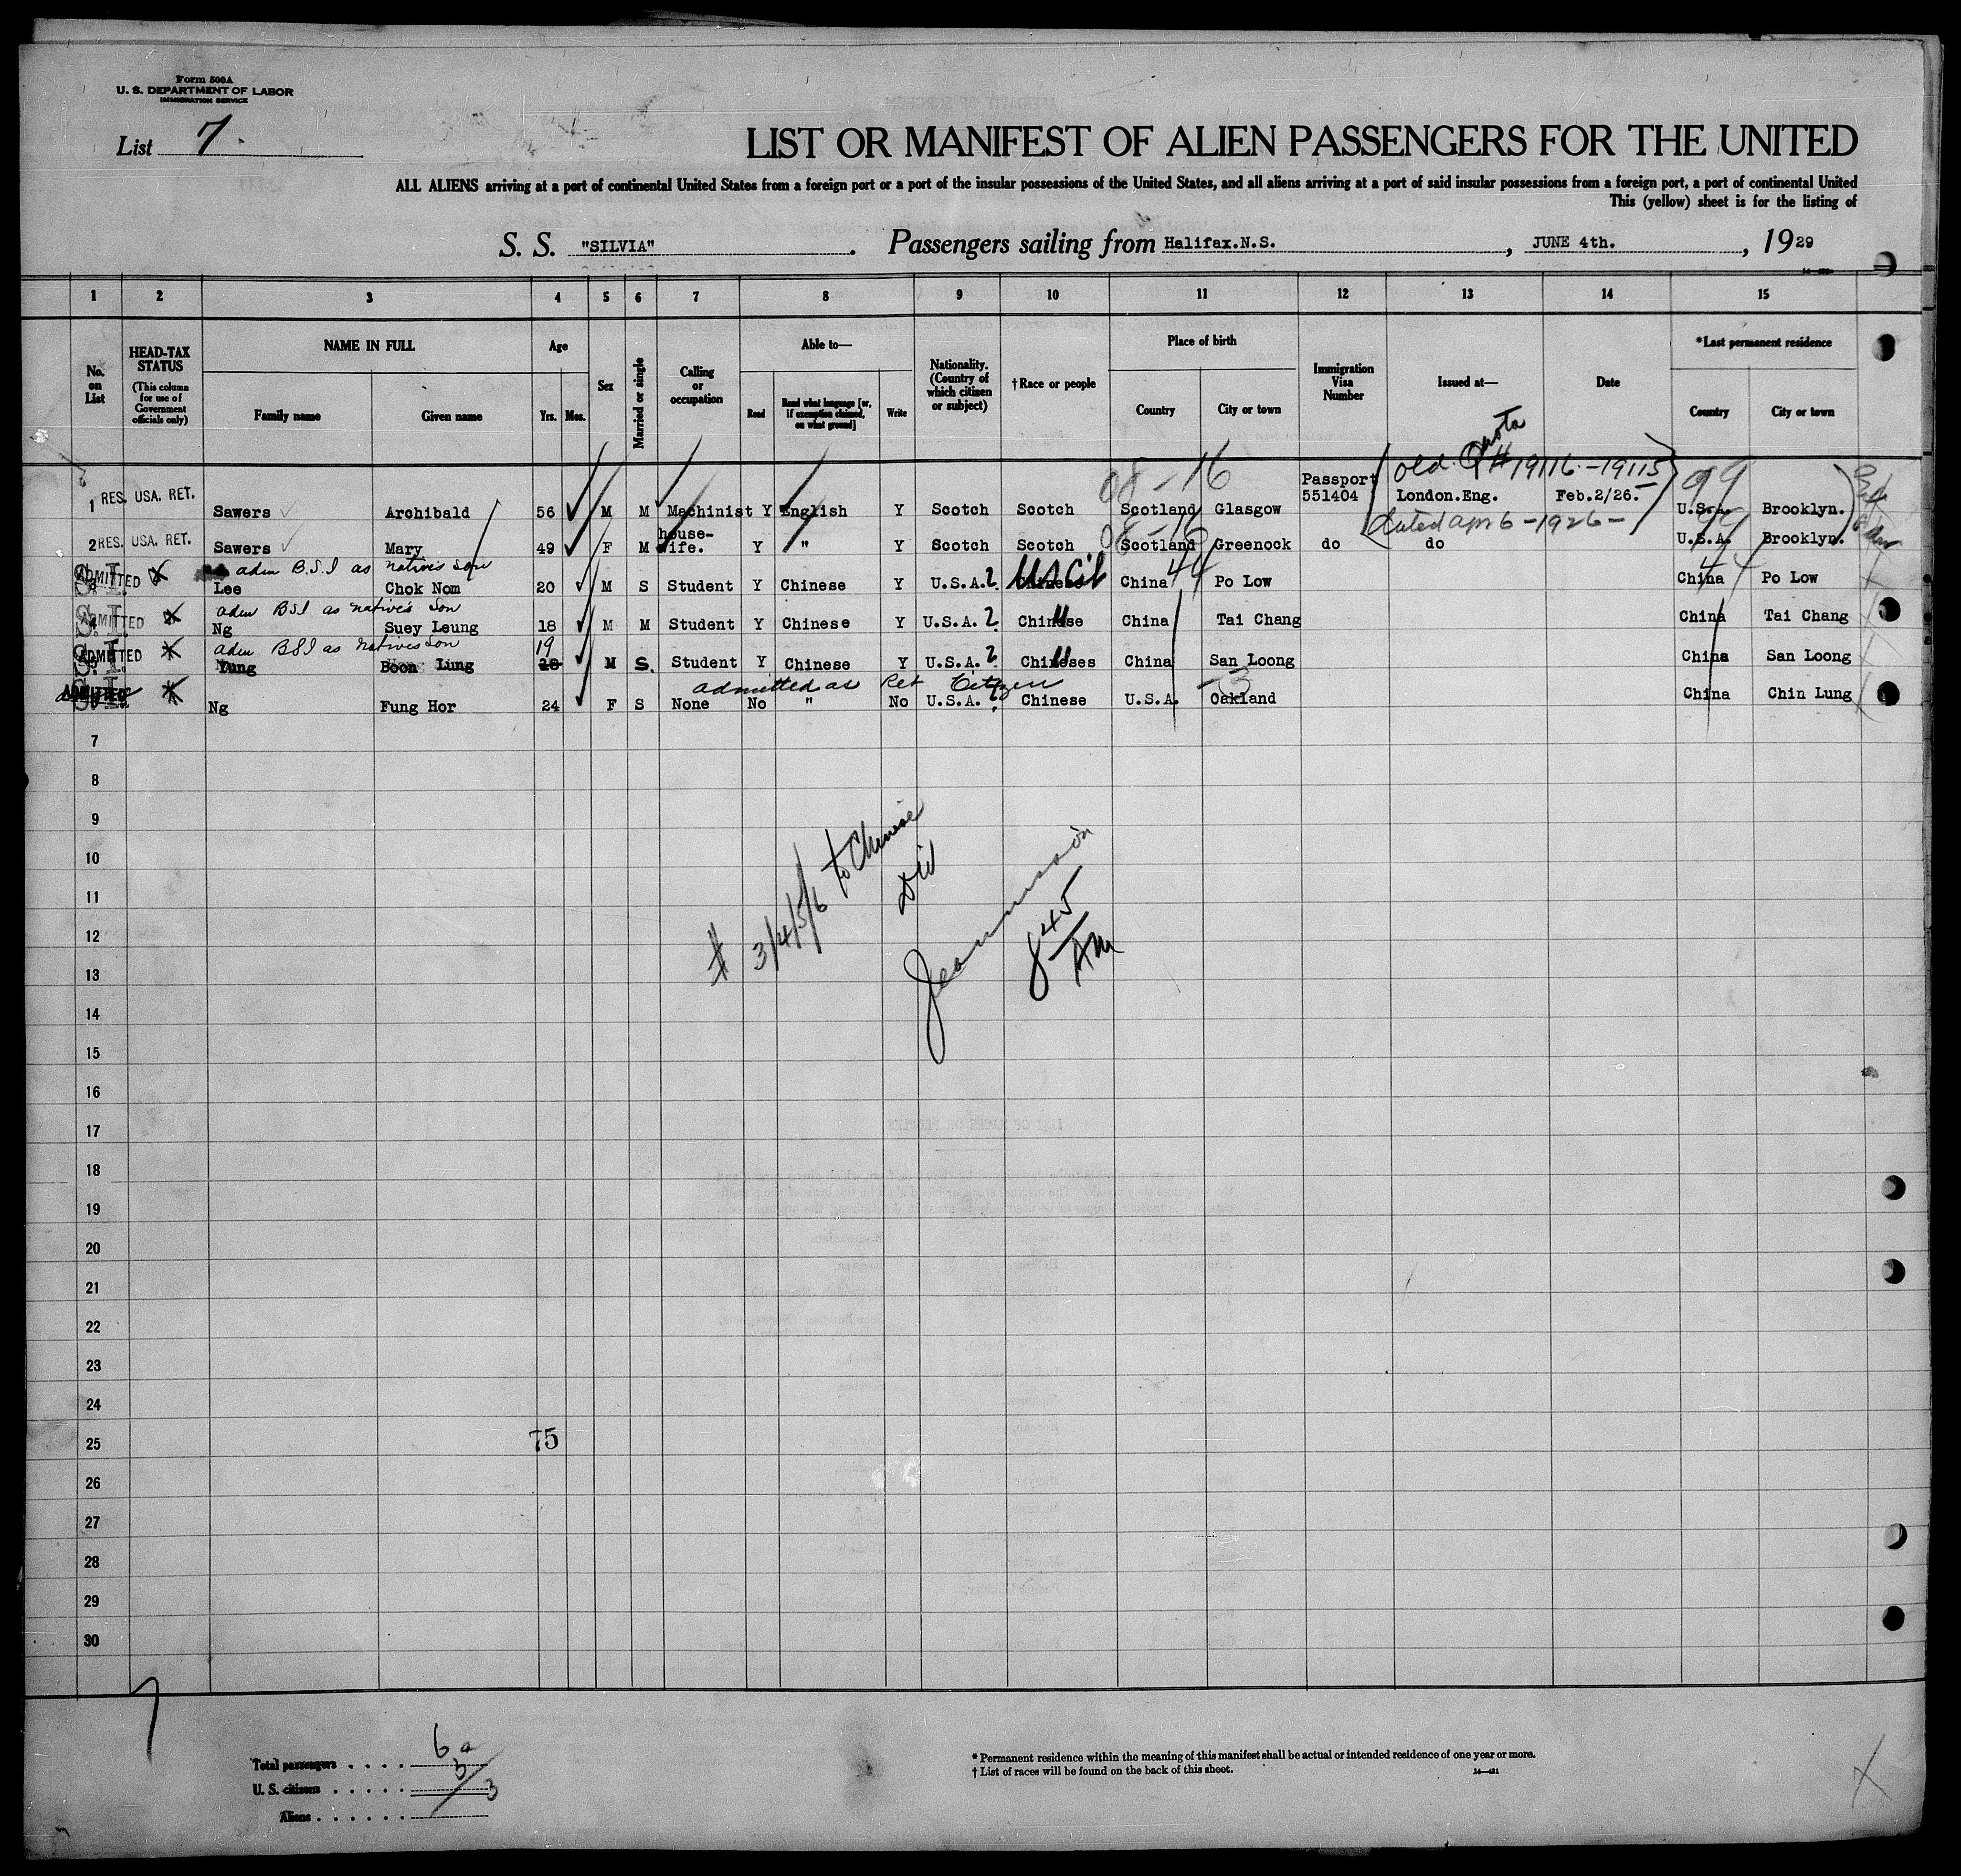 Form 500A
U. S. DEPARTMENT OF LABOR
IMMIGRATION SERVICE
List 7.
LIST OR MANIFEST OF ALIEN PASSENGERS FOR THE UNITED
ALL ALIENS arriving at a port of continental United States from a foreign port or a port of the insular possessions of the United States, and all aliens arriving at a port of said insular possessions from a foreign port, a port of continental United
This (yellow) sheet is for the listing of
S. S. "SILVIA". Passengers sailing from Halifax.N.S., JUNE 4th., 1929
1 2 3 4 5 6 7 8 9 10 11 12 13 14 15
No. on List
HEAD-TAX STATUS (This column for use of Government officials only)
NAME IN FULL
Family name Given name
Age
Yrs. Mos.
Sex
Married or single
Calling or occupation
Able to—
Read Read what language [or, if exemption claimed, on what ground] Write
Nationality. (Country of which citizen or subject)
†Race or people
Place of birth
Country City or town
Immigration Visa Number
Issued at—
Date
*Last permanent residence
Country City or town
old Quota # 19116-19115
08-16 99
1 RES. USA. RET. Sawers Archibald 56 M M Machinist Y English Y Scotch Scotch Scotland Glasgow Passport 551404 London.Eng. Feb.2/26. U.S.A. Brooklyn.
dated apr 6-1926-
08-16
2 RES. USA. RET. Sawers Mary 49 F M house-wife. Y " Y Scotch Scotch Scotland Greenock do do U.S.A. Brooklyn.
adm B.S.I as natives son
S.I. ADMITTED Lee Chok Nom 20 M S Student Y Chinese Y U.S.A.? Chinese US Cit China 44 Po Low China 44 Po Low
adm BSI as natives Son
S.I. ADMITTED Ng Suey Leung 18 M M Student Y Chinese Y U.S.A.? Chinese " China Tai Chang China Tai Chang
adm BSI as natives Son 19
S.I. ADMITTED Yung Boon Lung 18 M S. Student Y Chinese Y U.S.A.? Chineses " China San Loong China San Loong
admitted as Ret Citizen
S.I. ADMITTED Ng Fung Hor 24 F S None No " No U.S.A.? Chinese U.S.A. Oakland China Chin Lung
7
8
9
10
11
12
13
14
15
16
17
18
19
20
21
22
23
24
25
26
27
28
29
30
# 3/4/5/6 to Chinese
Div
8 45 AM
75
7
Total passengers . . . . 6
U. S. citizens . . . . . 3
Aliens . . . . . . 3
* Permanent residence within the meaning of this manifest shall be actual or intended residence of one year or more.
† List of races will be found on the back of this sheet.